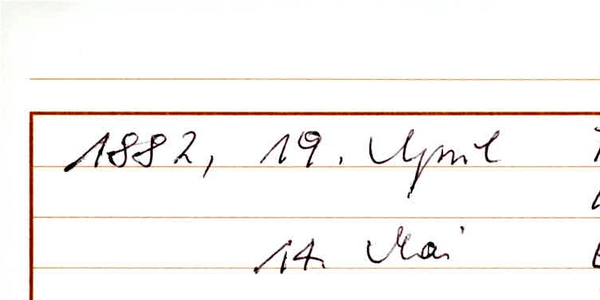 1882, 19. April
14. Mai